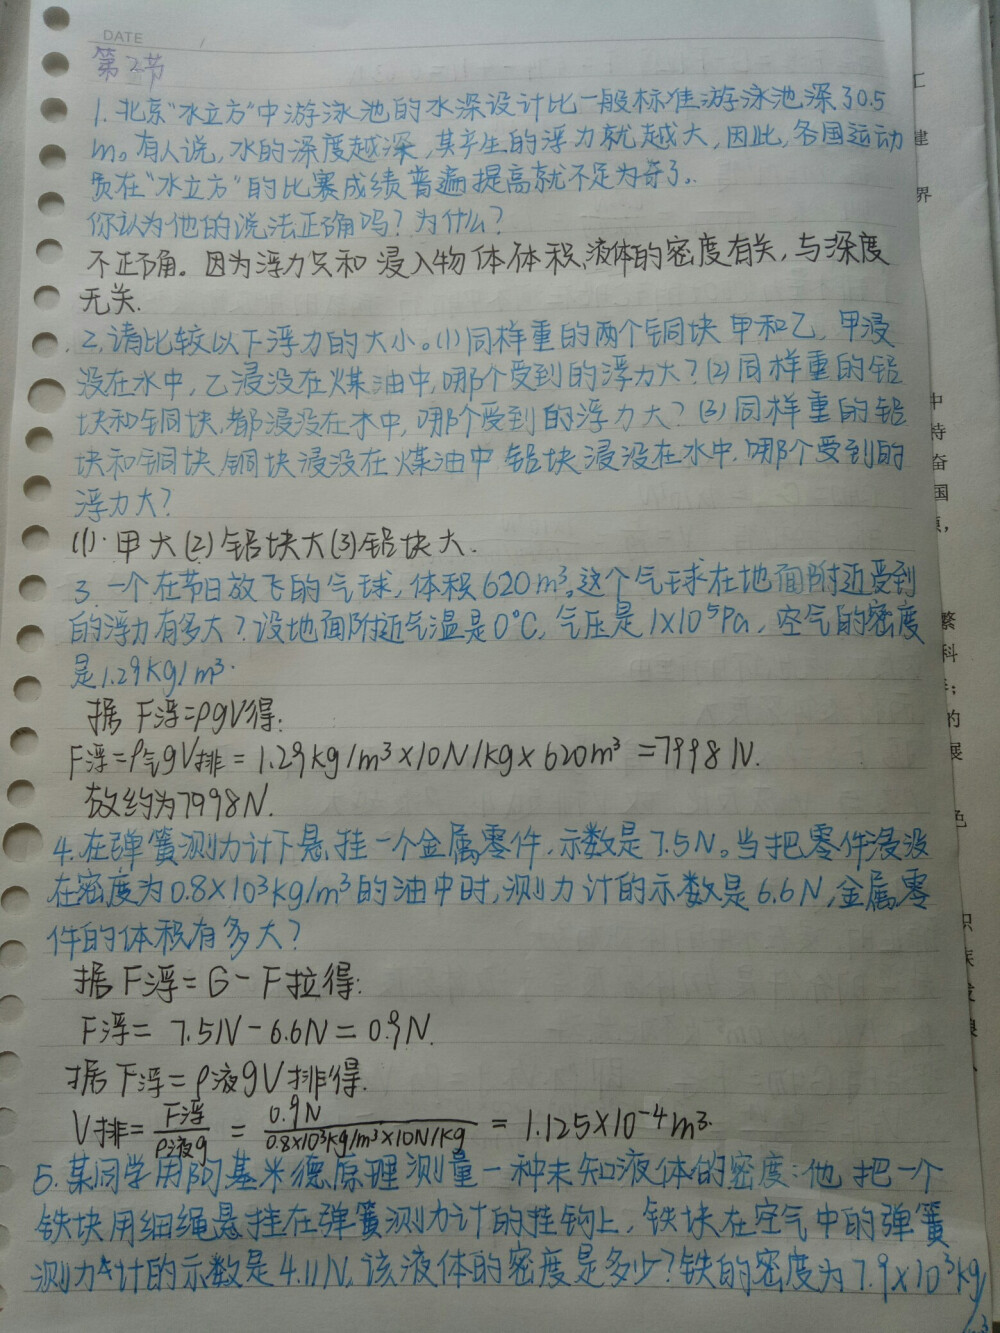 DATE /
第2节
1. 北京“水立方”中游泳池的水深设计比一般标准游泳池深了0.5
m。有人说,水的深度越深,其产生的浮力就越大,因此,各国运动
员在“水立方”的比赛成绩普遍提高就不足为奇了。
你认为他的说法正确吗?为什么?
不正确。因为浮力只和浸入物体体积、液体的密度有关,与深度
无关.
2.请比较以下浮力的大小。(1)同样重的两个铜块甲和乙,甲浸
没在水中,乙浸没在煤油中,哪个受到的浮力大?(2)同样重的铝
块和铜块,都浸没在水中,哪个受到的浮力大?(3)同样重的铝
块和铜块,铜块浸没在煤油中,铝块浸没在水中.哪个受到的
浮力大?
(1).甲大(2)铝块大(3)铝块大.
3.一个在节日放飞的气球,体积620m³,这个气球在地面附近受到
的浮力有多大?设地面附近气温是0°C,气压是1×10⁵Pa,空气的密度
是1.29kg/m³.
据F浮=ρgV得:
F浮=ρ气gV排=1.29kg/m³×10N/kg×620m³=7998N.
故约为7998N.
4.在弹簧测力计下悬挂一个金属零件,示数是7.5N。当把零件浸没
在密度为0.8×10³kg/m³的油中时,测力计的示数是6.6N,金属零
件的体积有多大?
据F浮=G-F拉得:
F浮=7.5N-6.6N=0.9N.
据F浮=ρ液gV排得.
V排=F浮/ρ液g=0.9N/0.8×10³kg/m³×10N/kg=1.125×10⁻⁴m³.
5.某同学用阿基米德原理测量一种未知液体的密度:他把一个
铁块用细绳悬挂在弹簧测力计的挂钩上,铁块在空气中的弹簧
测力计的示数是4.11N,该液体的密度是多少?铁的密度为7.9×10³kg/